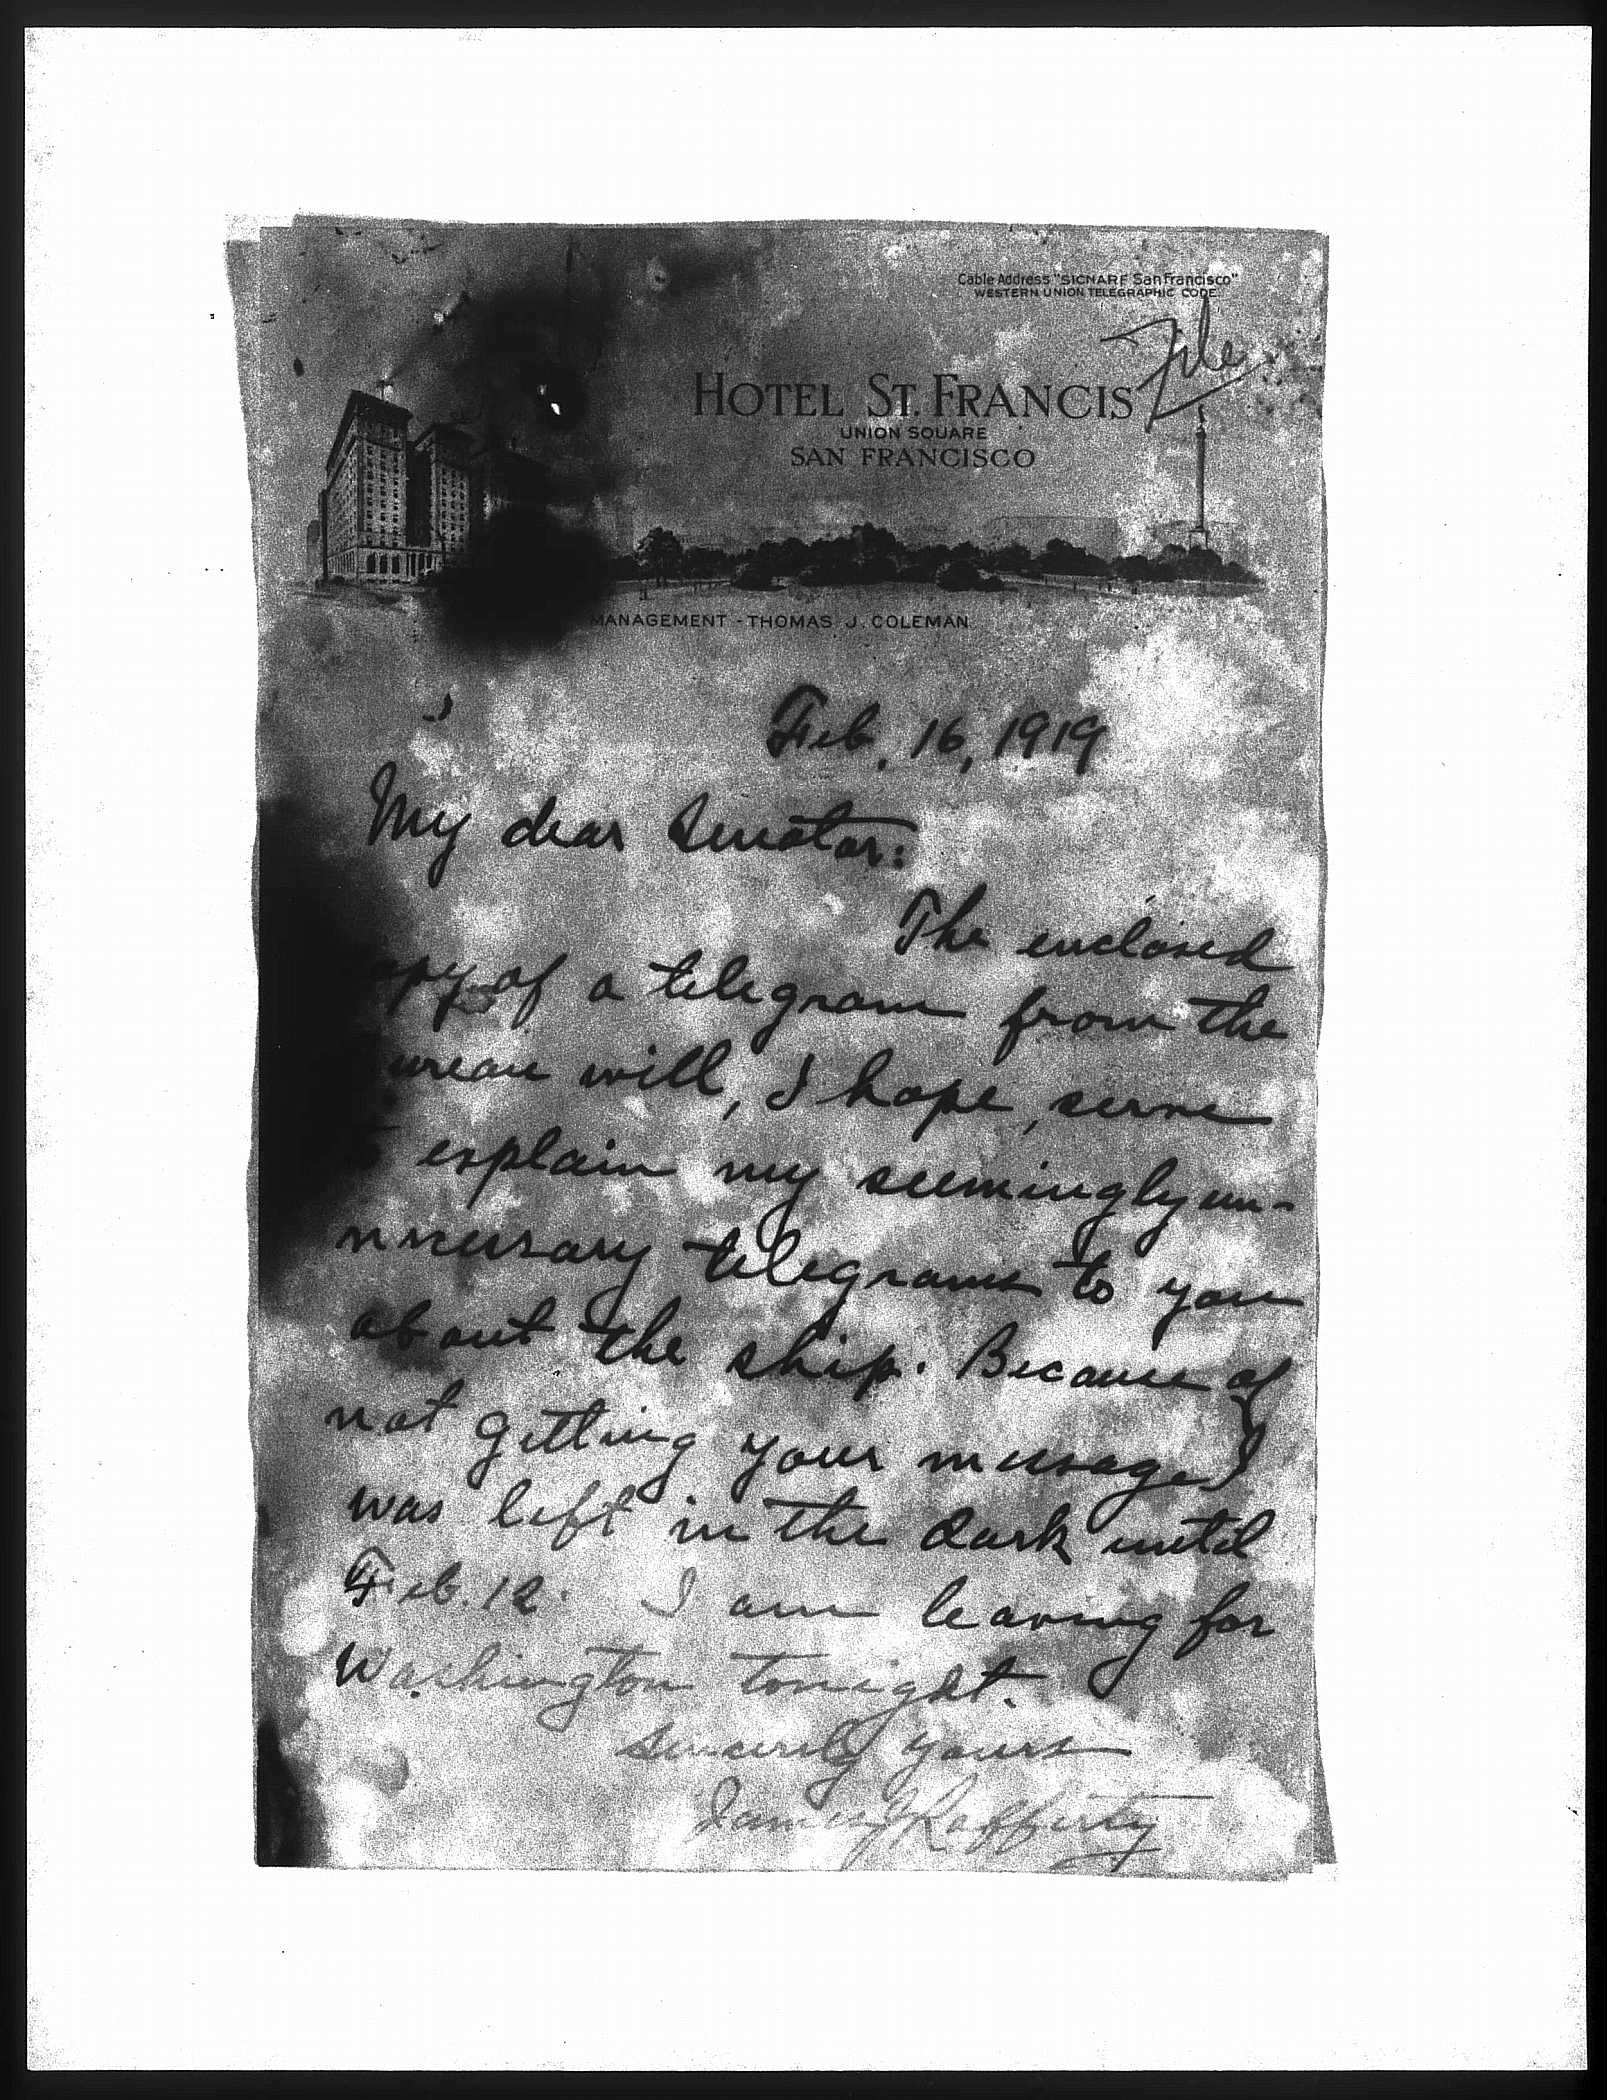 Cable Address "SICNARF SanFrancisco"
WESTERN UNION TELEGRAPHIC CODE.
File
HOTEL ST. FRANCIS
UNION SQUARE
SAN FRANCISCO
MANAGEMENT - THOMAS J. COLEMAN
Feb. 16, 1919
My dear Senator:
The enclosed
opy of a telegram from the
ureau will, I hope, serve
to explain my seemingly un-
necessary telegrams to you
about the ship. Because of
not getting your message I
was left in the dark until
Feb. 12. I am leaving for
Washington tonight.
Sincerely yours
James J Rafferty